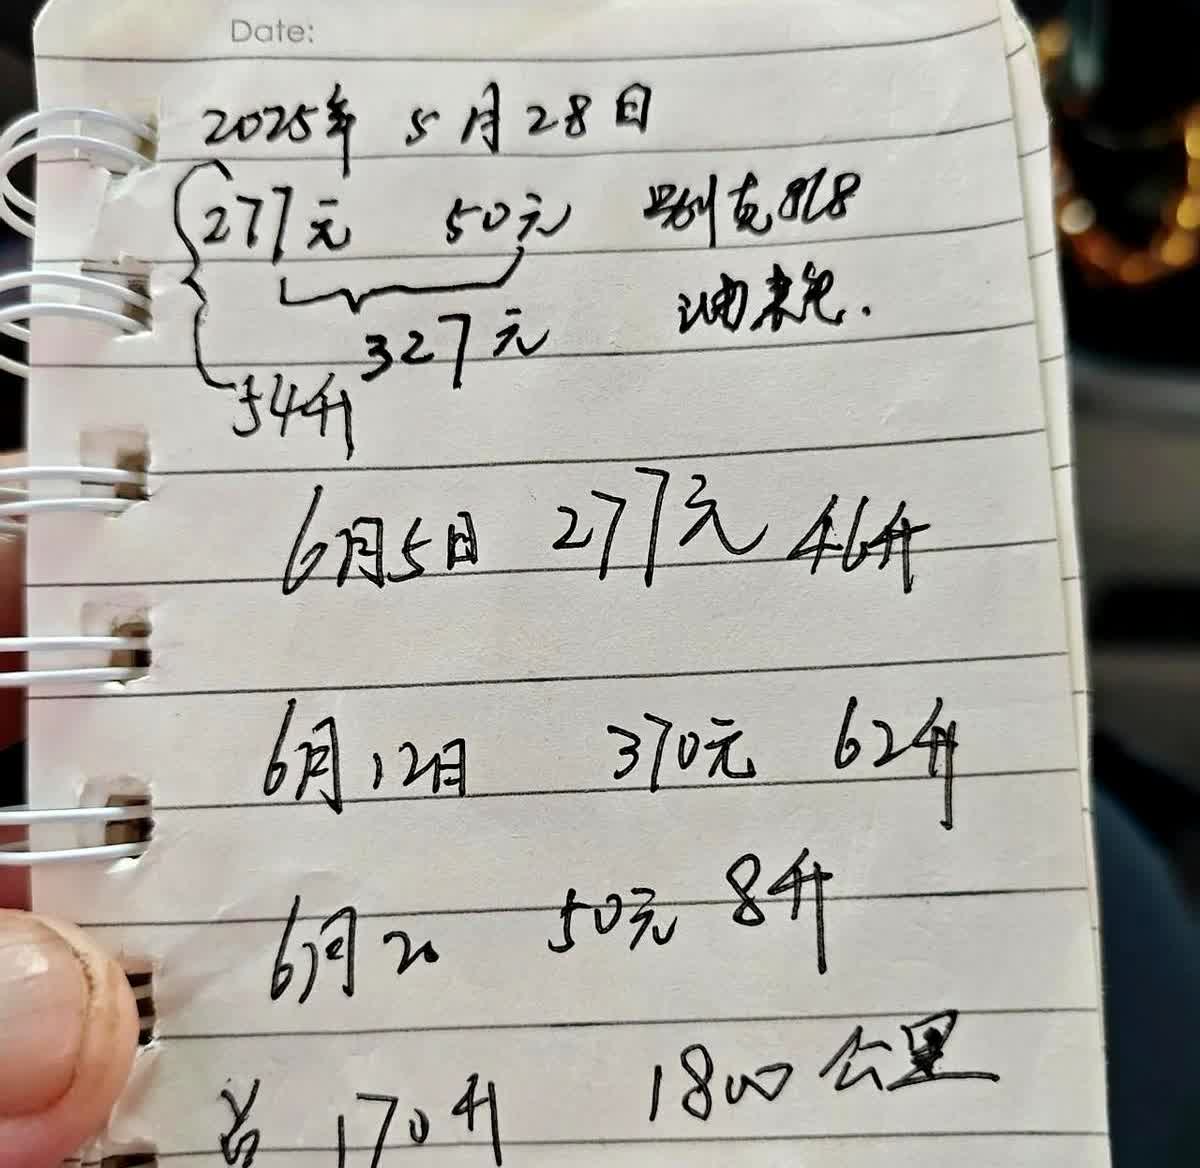 Date:
2025年 5月28日
277元 50元 别克818
327元 油耗.
54升
6月5日 277元 46升
6月12日 370元 62升
6月20 50元 8升
总 170升 1800公里